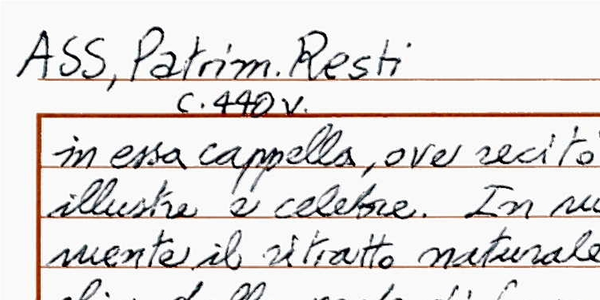 ASS, Patrim. Resti
c. 440 v.
in essa cappella, ove recitò
illustre e celebre. In
mente il ritratto naturale